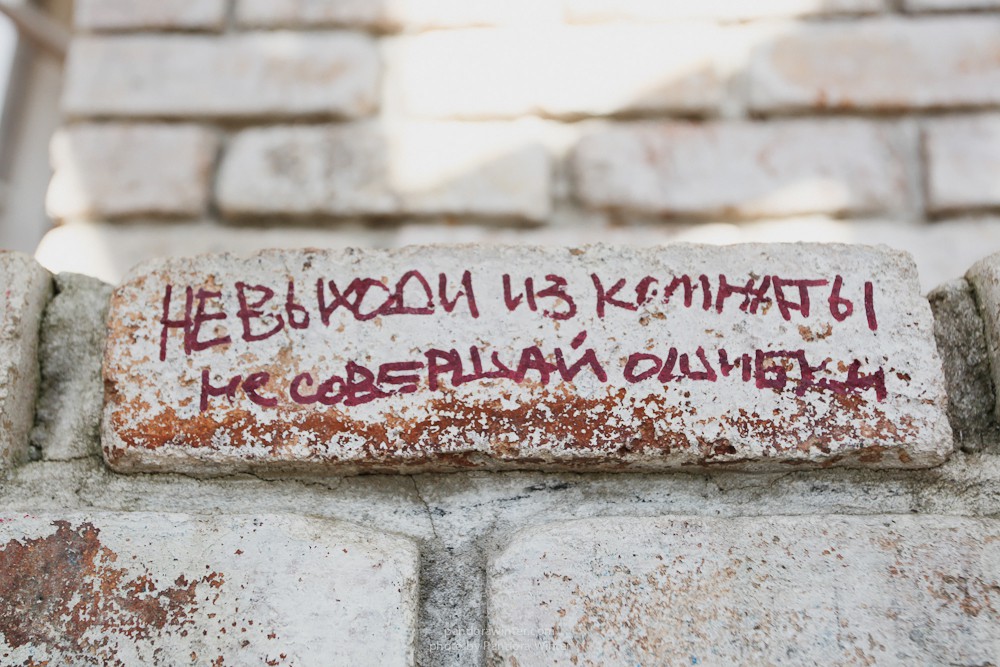 НЕ ВЫХОДИ ИЗ КОМНАТЫ
не СОВЕРШАЙ ОШИБКИ